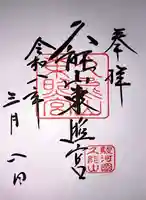 奉拝
久能山東照宮
令和二年
三月一日
駿河國
久能山